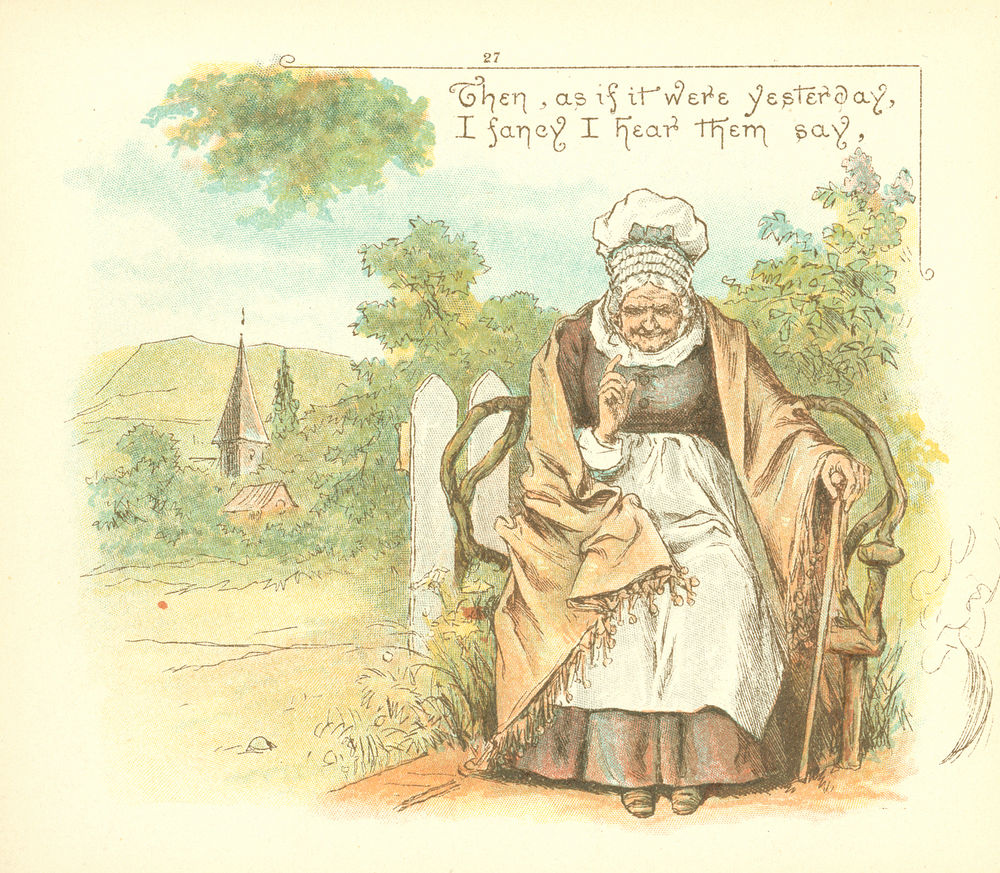 27
Then, as if it were yesterday,
I fancy I hear them say,